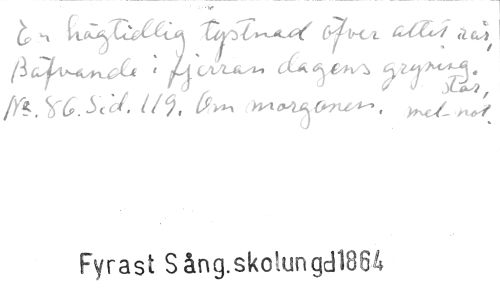 En högtidlig tystnad öfver allt rår,
Bäfvande i fjerran dagens gryning.
står,
No. 86. Sid. 119. Om morgonen. mel-not.
Fyrast Sång.skolungd1864